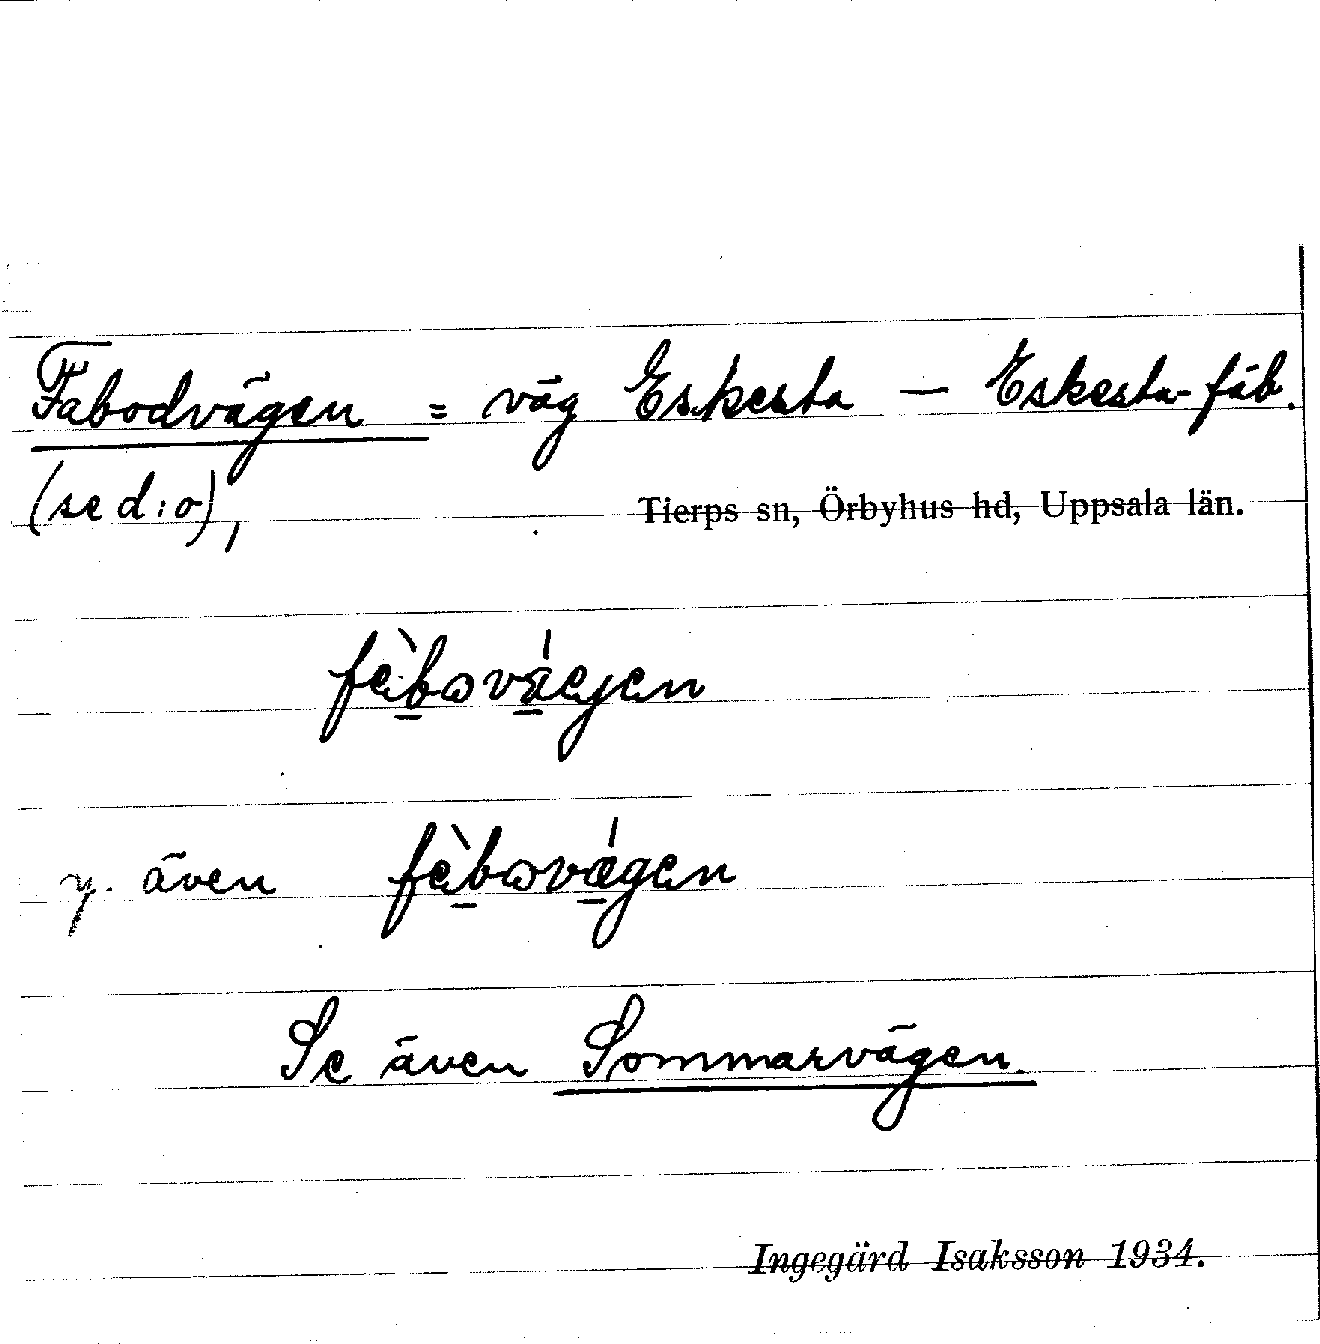 Fäbodvägen = väg Eskesta — Eskesta-fäb.
(se d:o),
Tierps sn, Örbyhus hd, Uppsala län.
y. även
Se även Sommarvägen.
Ingegärd Isaksson 1934.